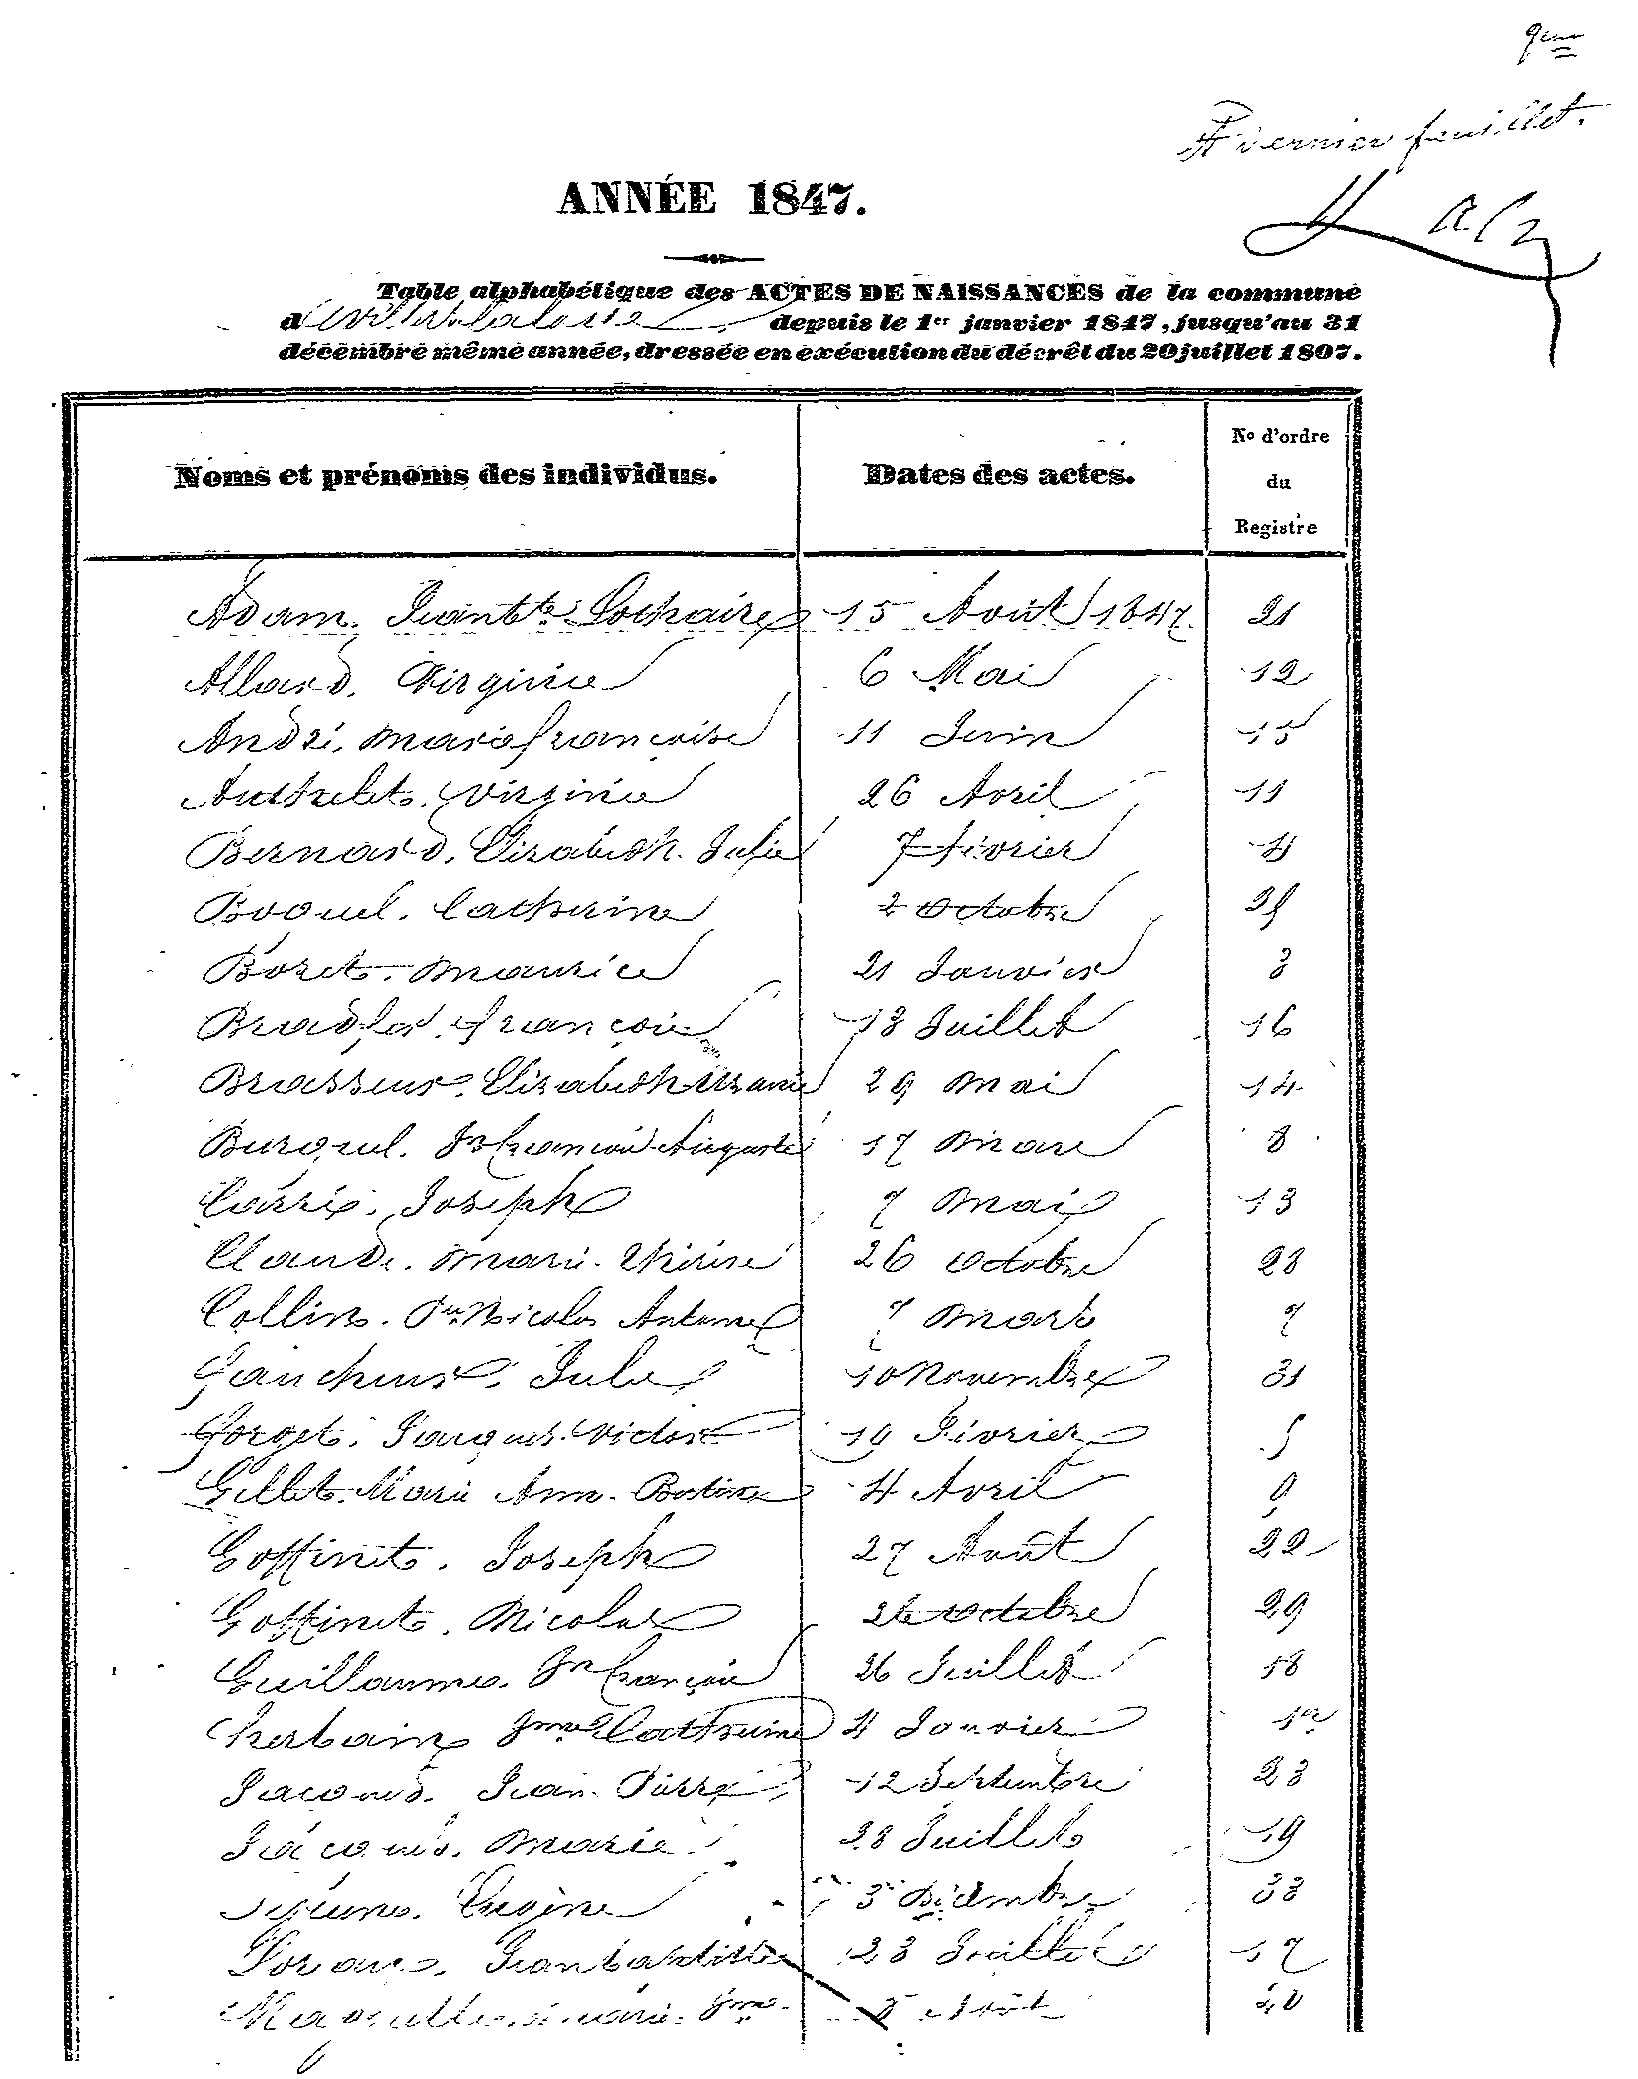 9eme
dernier feuillet.
ANNÉE 1847.
Table alphabétique des ACTES DE NAISSANCES de la commune
d depuis le 1er janvier 1847, jusqu'au 31
décembre même année, dressée en exécution du décrêt du 20 juillet 1807.
Noms et prénoms des individus. Dates des actes. No d'ordre du Registre
Adam. Jean Bte Lothaire 15 Août 1847 21
Allard. Virginie 6 Mai 12
André. Marie françoise 11 Juin 15
Authelet. Virginie 26 Avril 11
Bernard. Elisabeth. Julie 7 février 4
Boquel. Catherine 2 Octobre 25
Boret. Maurice 21 Janvier 3
françois 13 Juillet 16
Brasseur. Elisabeth 29 Mai 14
Jn françois Auguste 17 Mars 8
Carré. Joseph 7 Mai 13
Claude. Marie. Thérèse 26 Octobre 28
Collin. Jn Nicolas Antoine 7 Mars 7
Jules 10 Novembre 31
Gorget. Jacques. Victor 19 Février 5
Gillet. Marie Ann. 4 Avril 9
Goffinet. Joseph 27 Août 22
Goffinet. Nicolas 26 Octobre 29
Guillaume. Jn françois 26 Juillet 18
Herbain Catherine 4 Janvier 1er
Jacques. Jean. Pierre 12 Septembre 23
Jacques. Marie 28 Juillet 19
Lejeune. Eugène 3 Décembre 33
Jean baptiste 23 Juillet 17
Marie. Août 20